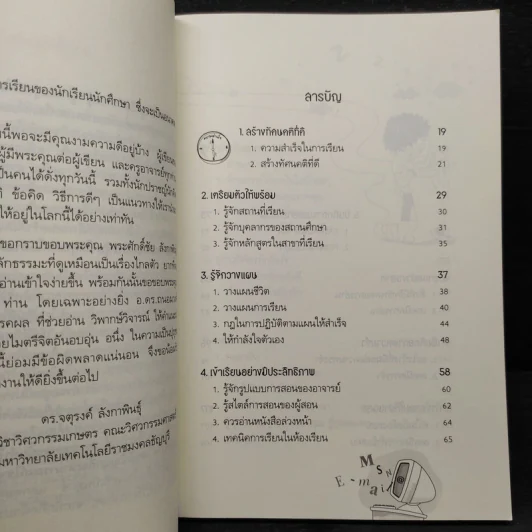 การเรียนของนักเรียนนักศึกษา ซึ่งจะเป็น
นี้พอจะมีคุณงามความดีอยู่บ้าง ผู้เขียน
ผู้มีพระคุณต่อผู้เขียน และครูอาจารย์ทุก
เป็นคนได้ดั่งทุกวันนี้ รวมทั้งนักปราชญ์
ข้อคิด วิธีการดีๆ เป็นแนวทางให้เรา
ให้อยู่ในโลกนี้ได้อย่างเท่าทัน
ขอกราบขอบพระคุณ พระศักดิ์ชัย
หลักธรรมะที่ดูเหมือนเป็นเรื่องไกลตัว
อ่านเข้าใจง่ายขึ้น พร้อมกันนั้นขอขอบพระ
ท่าน โดยเฉพาะอย่างยิ่ง อ.ดร.
ที่ช่วยอ่าน วิพากษ์วิจารณ์ ให้
ไมตรีจิตอันอบอุ่น อนึ่ง ในความเป็น
นี้ย่อมมีข้อผิดพลาดแน่นอน จึงขอ
งานให้ดียิ่งขึ้นต่อไป
ดร.จตุรงค์ ลังกาพินธุ์
วิชาวิศวกรรมเกษตร คณะวิศวกรรมศาสตร์
มหาวิทยาลัยเทคโนโลยีราชมงคลธัญบุรี
สารบัญ
1. สร้างทัศนคติที่ดี 19
1. ความสำเร็จในการเรียน 19
2. สร้างทัศนคติที่ดี 21
2. เตรียมตัวให้พร้อม 29
1. รู้จักสถานที่เรียน 30
2. รู้จักบุคลากรของสถานศึกษา 31
3. รู้จักหลักสูตรในสาขาที่เรียน 35
3. รู้จักวางแผน 37
1. วางแผนชีวิต 38
2. วางแผนการเรียน 40
3. กฎในการปฏิบัติตามแผนให้สำเร็จ 44
4. ให้กำลังใจตัวเอง 48
4. เข้าเรียนอย่างมีประสิทธิภาพ 58
1. รู้จักรูปแบบการสอนของอาจารย์ 60
2. รู้สไตล์การสอนของผู้สอน 62
3. ควรอ่านหนังสือล่วงหน้า 64
4. เทคนิคการเรียนในห้องเรียน 65
MSN
E-mail